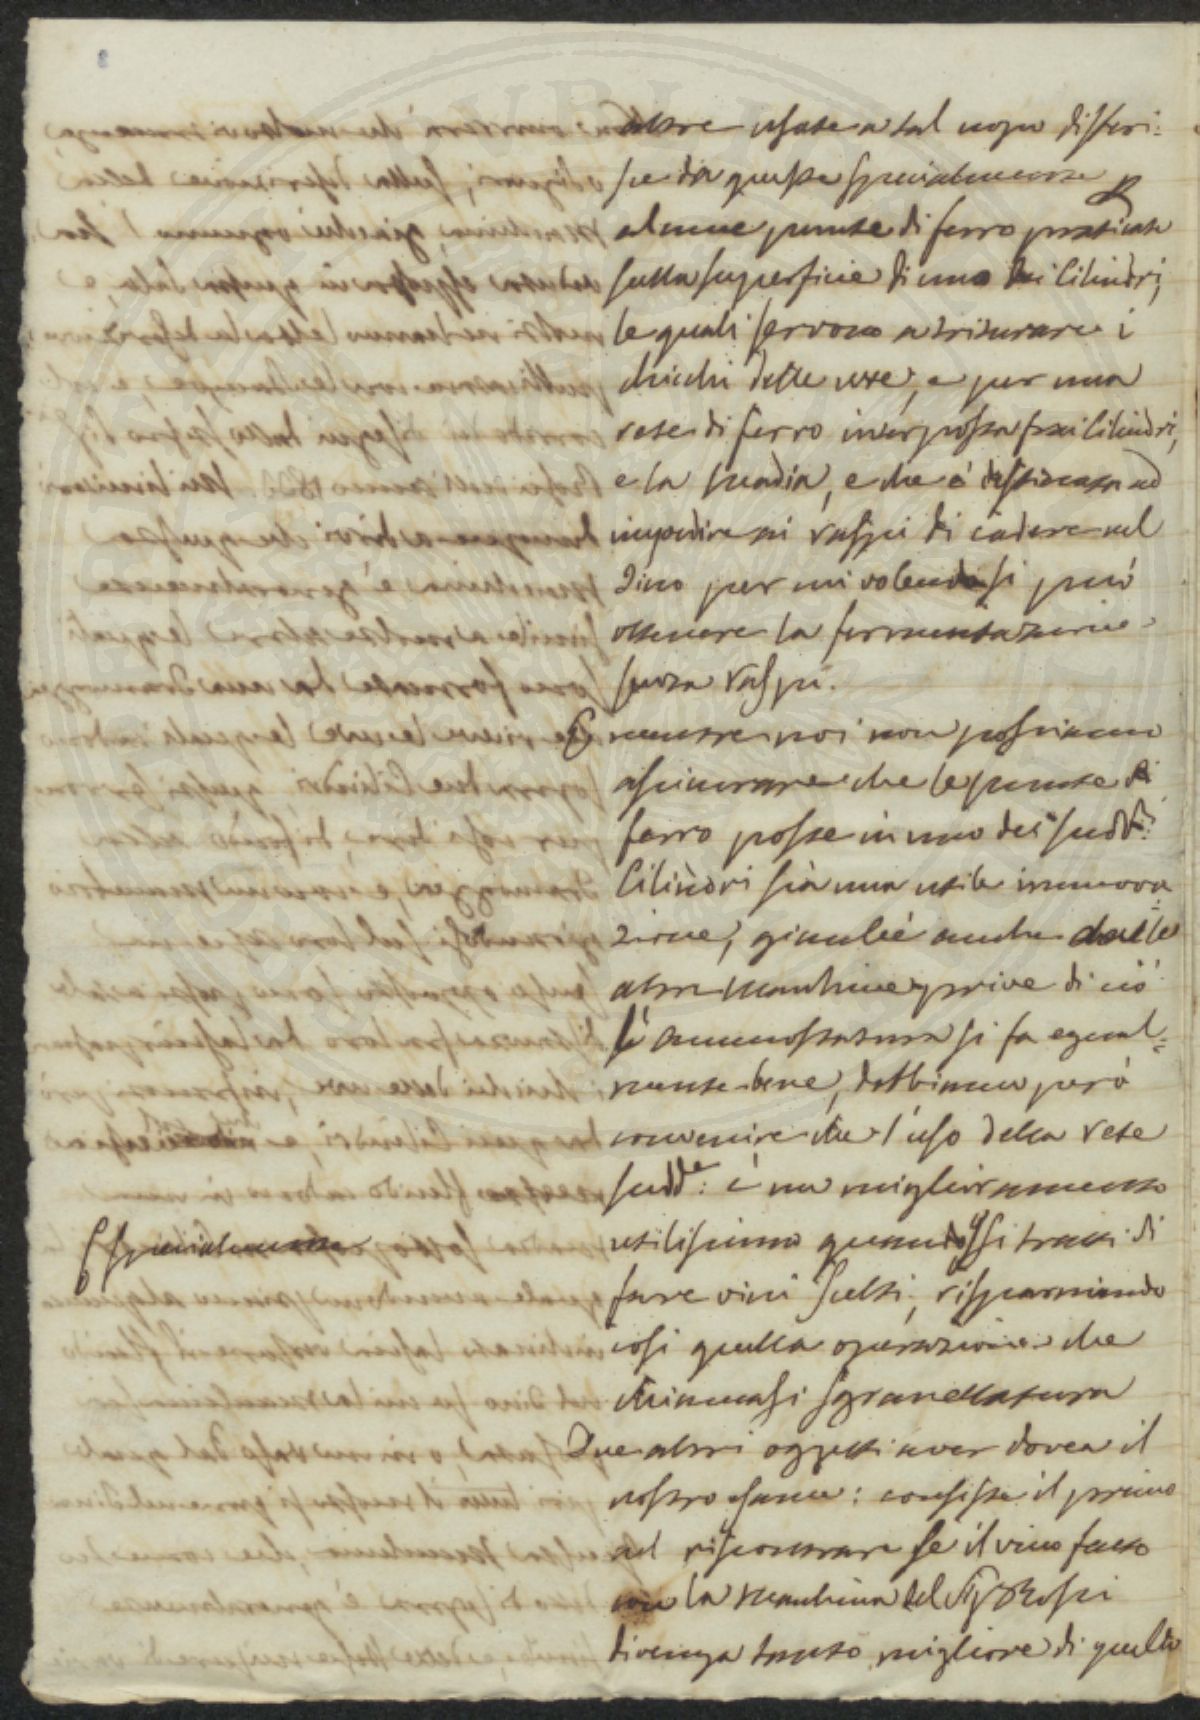 altre usate a tal uopo differi-
sce da queste specialmente
alcune punte di ferro praticate
sulla superficie di uno dei Cilindri,
le quali servono a triturare i
chicchi delle uve, e per una
rete di ferro interposta fra i Cilindri,
e la madia, e che è destinata ad
impedire ai raspi di cadere nel
tino per cui volendosi può
ottenere la fermentazione
senza raspi.
E mentre noi non possiamo
assicurare che le punte di
ferro poste in uno dei sudd.i
Cilindri sia una utile innova
zione, giacchè anche dalle
altre macchine prive di ciò
l'ammostatura si fa egual-
mente bene, dobbiamo però
convenire che l'uso della rete
sudd.e: è un miglioramento
utilissimo quando si tratti di
specialmente
fare vini scelti, risparmiando
così quella operazione che
chiamasi sgranellatura
Due altri oggetti aver dovea il
nostro esame: consiste il primo
nel riscontrare se il vino fatto
con la macchina del Sig.r Rossi
divenga tanto migliore di quello